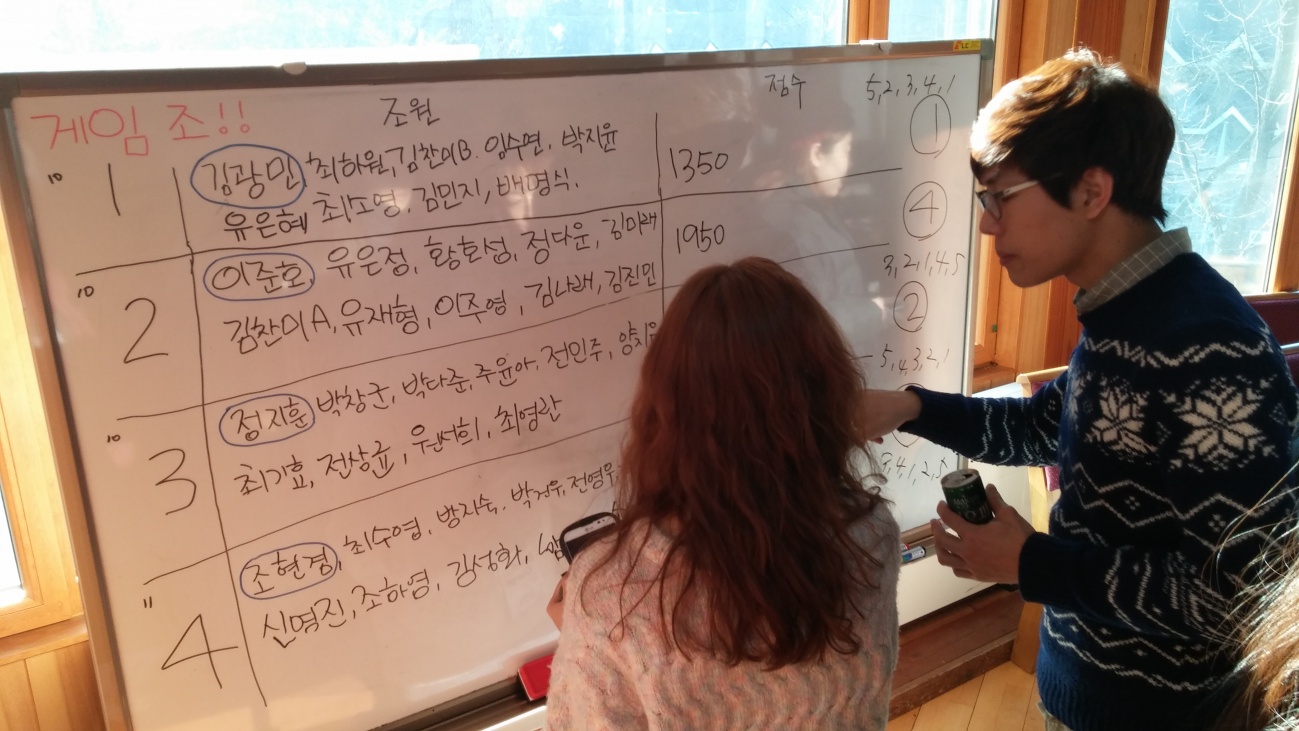 게임 조!! 조원 점수 5, 2, 3, 4, 1
10 1 김광민, 최하원, 김찬미B. 임수연, 박지윤 1350 ①
유은혜 최소영, 김민지, 배명식.
10 2 이준호, 유은정, 황화성, 정다운, 김미래 1950 ④
김찬미A, 유재형, 이주영, 김나래, 김진민 3, 2, 1, 4, 5
②
10 3 정지훈 박창군, 박다준, 주윤아, 전민주, 5, 4, 3, 2, 1
최기효, 전상균, 원서희, 최영란
11 4 조현경, 최수영, 방지숙, 박건우, 전영우 4, 1, 2, 5
신명진, 조하영, 김성화,